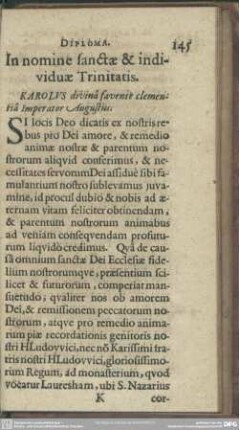 DIPLOMA. 145
In nomine ſanctæ & indi-
viduæ Trinitatis.
KAROLVS divinâ favente clemen-
tiâ Imperator Auguſtus.
SI locis Deo dicatis ex noſtris re-
bus pro Dei amore, & remedio
animæ noſtræ & parentum no-
ſtrorum aliqvid conferimus, & ne-
ceſſitates ſervorum Dei aſſiduè ſibi fa-
mulantium noſtro ſublevamus juva-
mine, id procul dubio & nobis ad æ-
ternam vitam feliciter obtinendam,
& parentum noſtrorum animabus
ad veniam conſeqvendam profutu-
rum liqvidò credimus. Qvâ de cau-
ſâ omnium ſanctæ Dei Eccleſiæ fide-
lium noſtrorumqve, præſentium ſci-
licet & futurorum, comperiat man-
ſuetudo; qvaliter nos ob amorem
Dei, & remiſſionem peccatorum no-
ſtrorum, atqve pro remedio anima-
rum piæ recordationis genitoris no-
ſtri HLudovvici, nec nõ Kariſſimi fra-
tris noſtri HLudovvici, glorioſiſſimo-
rum Regum, ad monaſterium, qvod
vocatur Laureſham, ubi S. Nazarius
K cor-